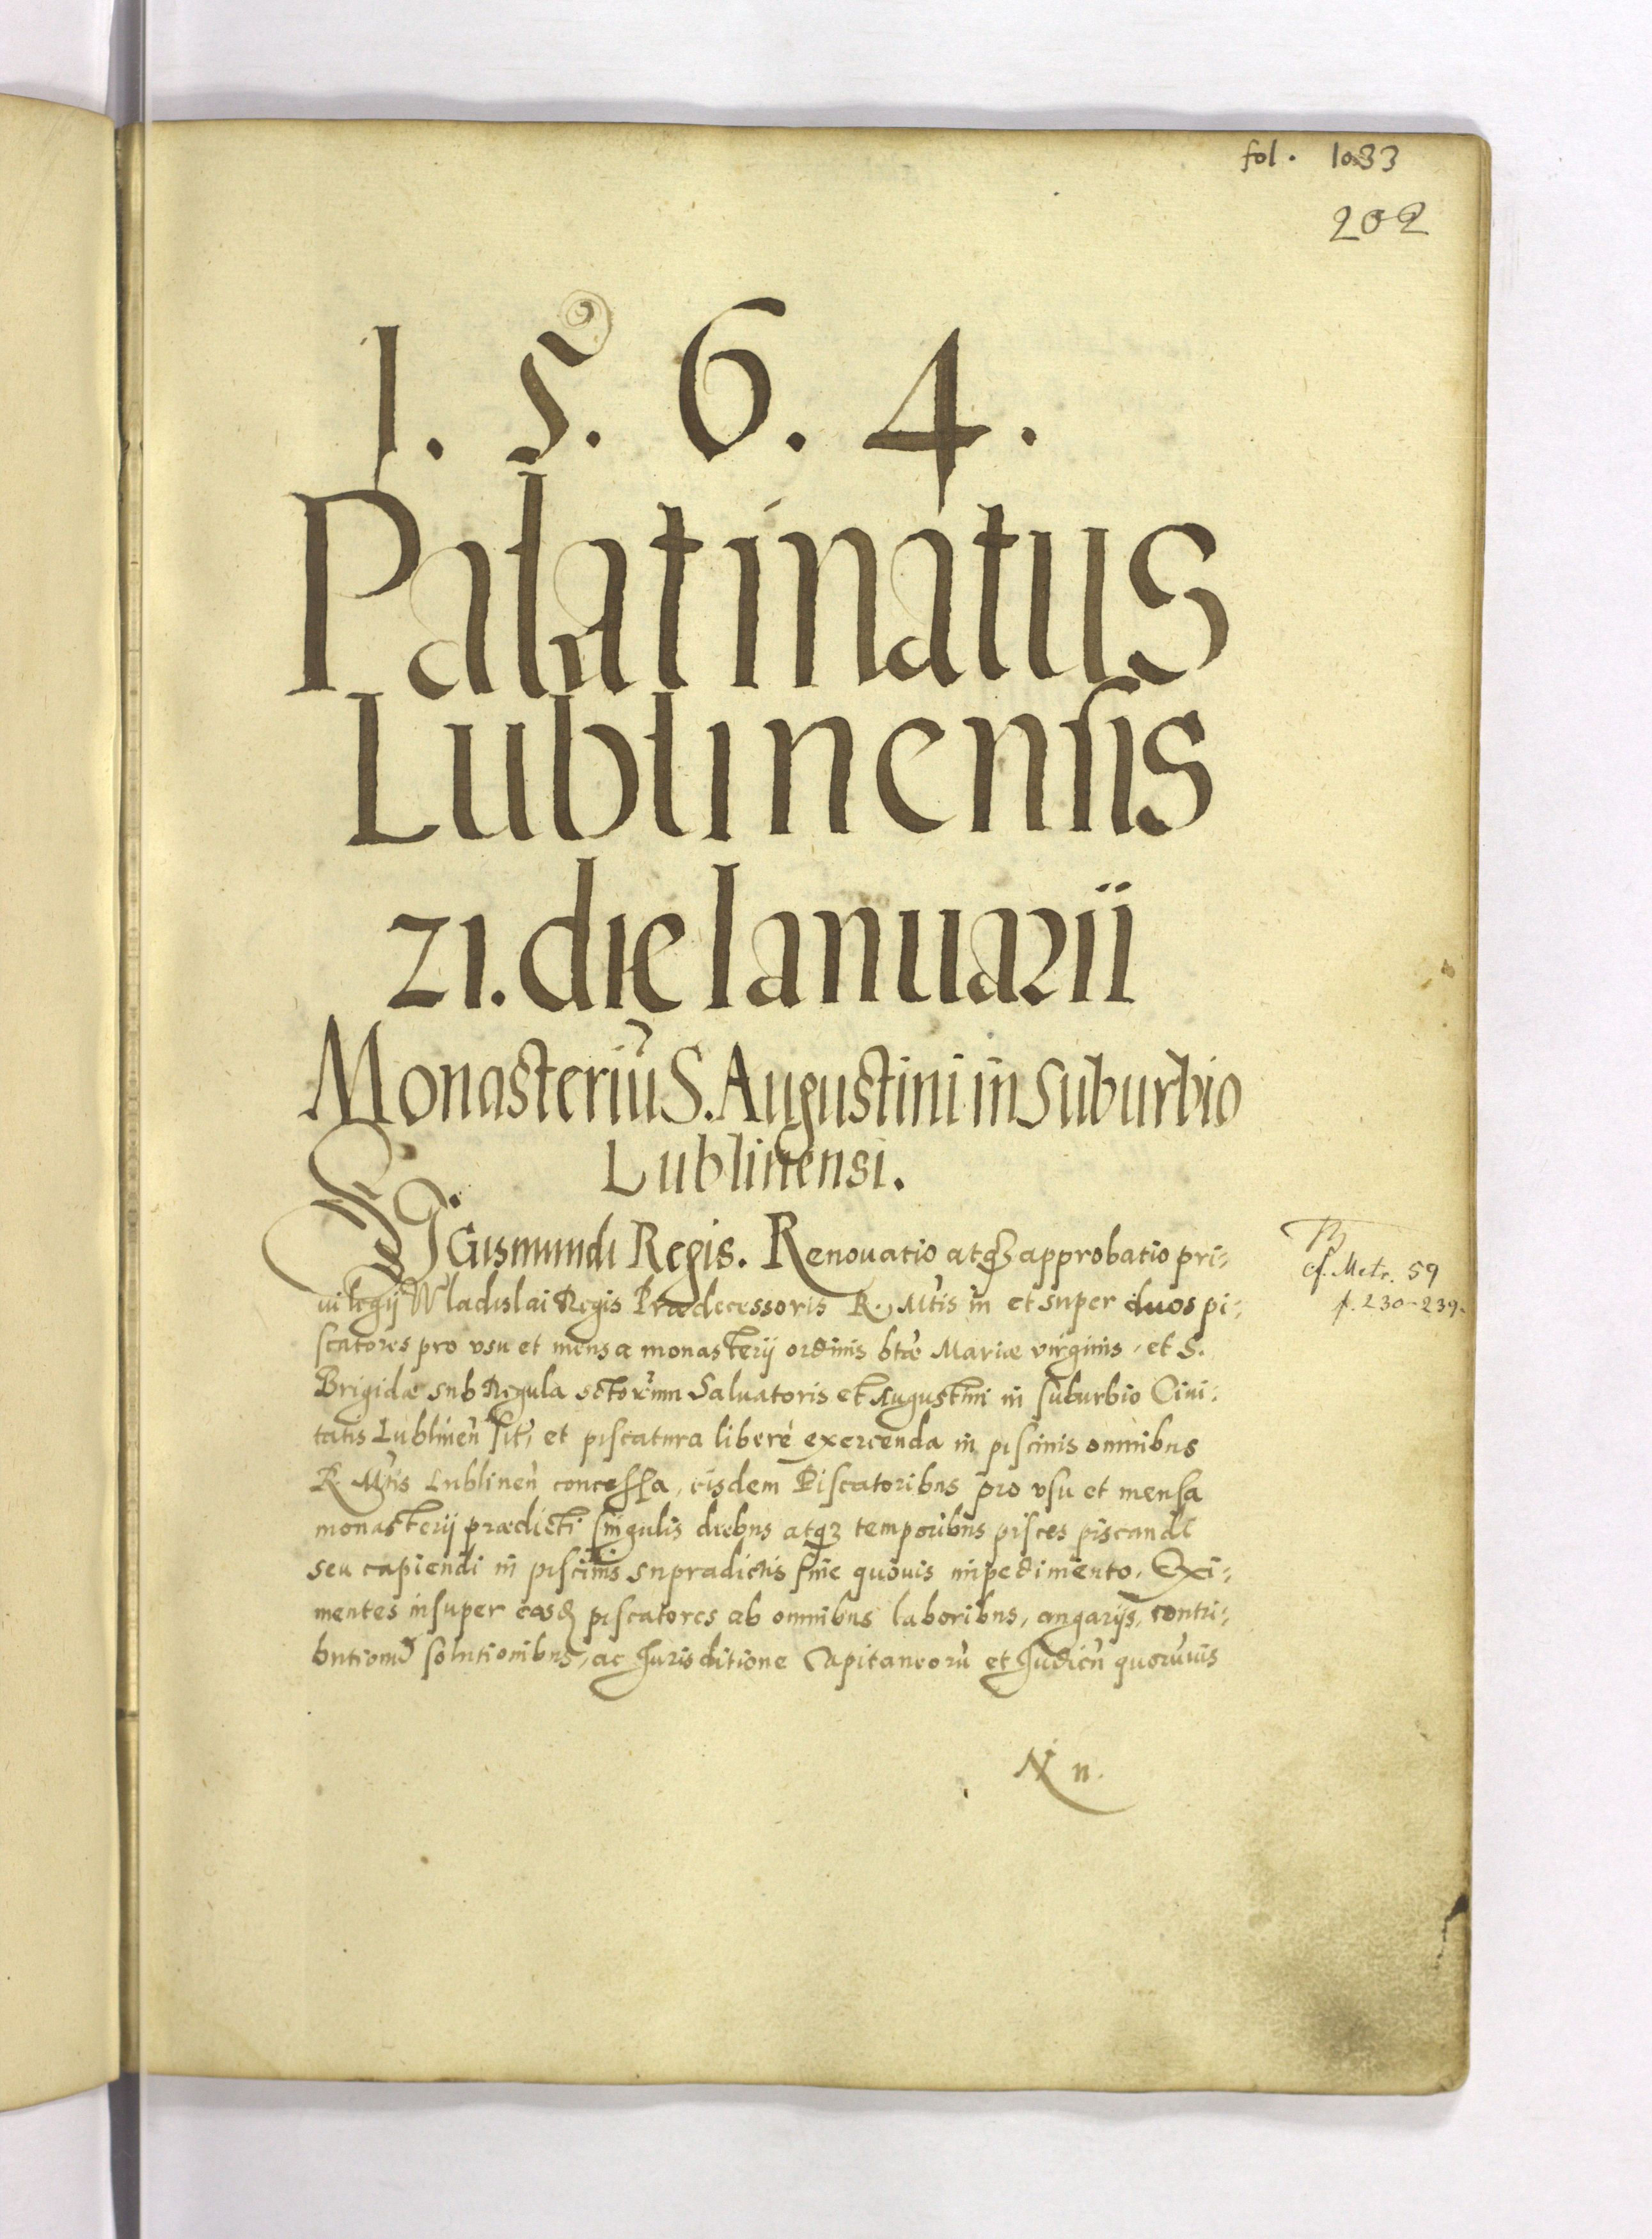 fol. 1033
202
1. 5. 6. 4.
Palatinatus
Lublinensis
21. die Ianuarii
Monasteriū S. Augustini in Suburbio
Lublinensi.
SIGismundi Regis. Renouatio atq3 approbatio pri=
uilegij Wladislai Regis Prædecessoris R. Mtis in et super duos pi=
scatores pro vsu et mensa monasterij ordinis btæ Mariæ virginis, et S.
Brigidæ sub Regula sctorum Saluatoris et Augustini in suburbio Ciui=
tatis Lublineñ sit, et piscatura liberè exercenda in piscinis omnibus
R. Mtis Lublineñ concessa, eisdem Piscatoribus pro vsu et mensa
monasterij prædicti singulis diebus atq3 temporibus pisces piscandi
seu capiendi in piscinis supradictis sine quouis impedimento. Exi=
mentes insuper eosd piscatores ab omnibus laboribus, angarijs, contri=
butionũ solutionibus, ac Jurisditione Capitaneorũ et Judicũ quorũuis
N n.
cf. Metr. 59
f. 230-239.